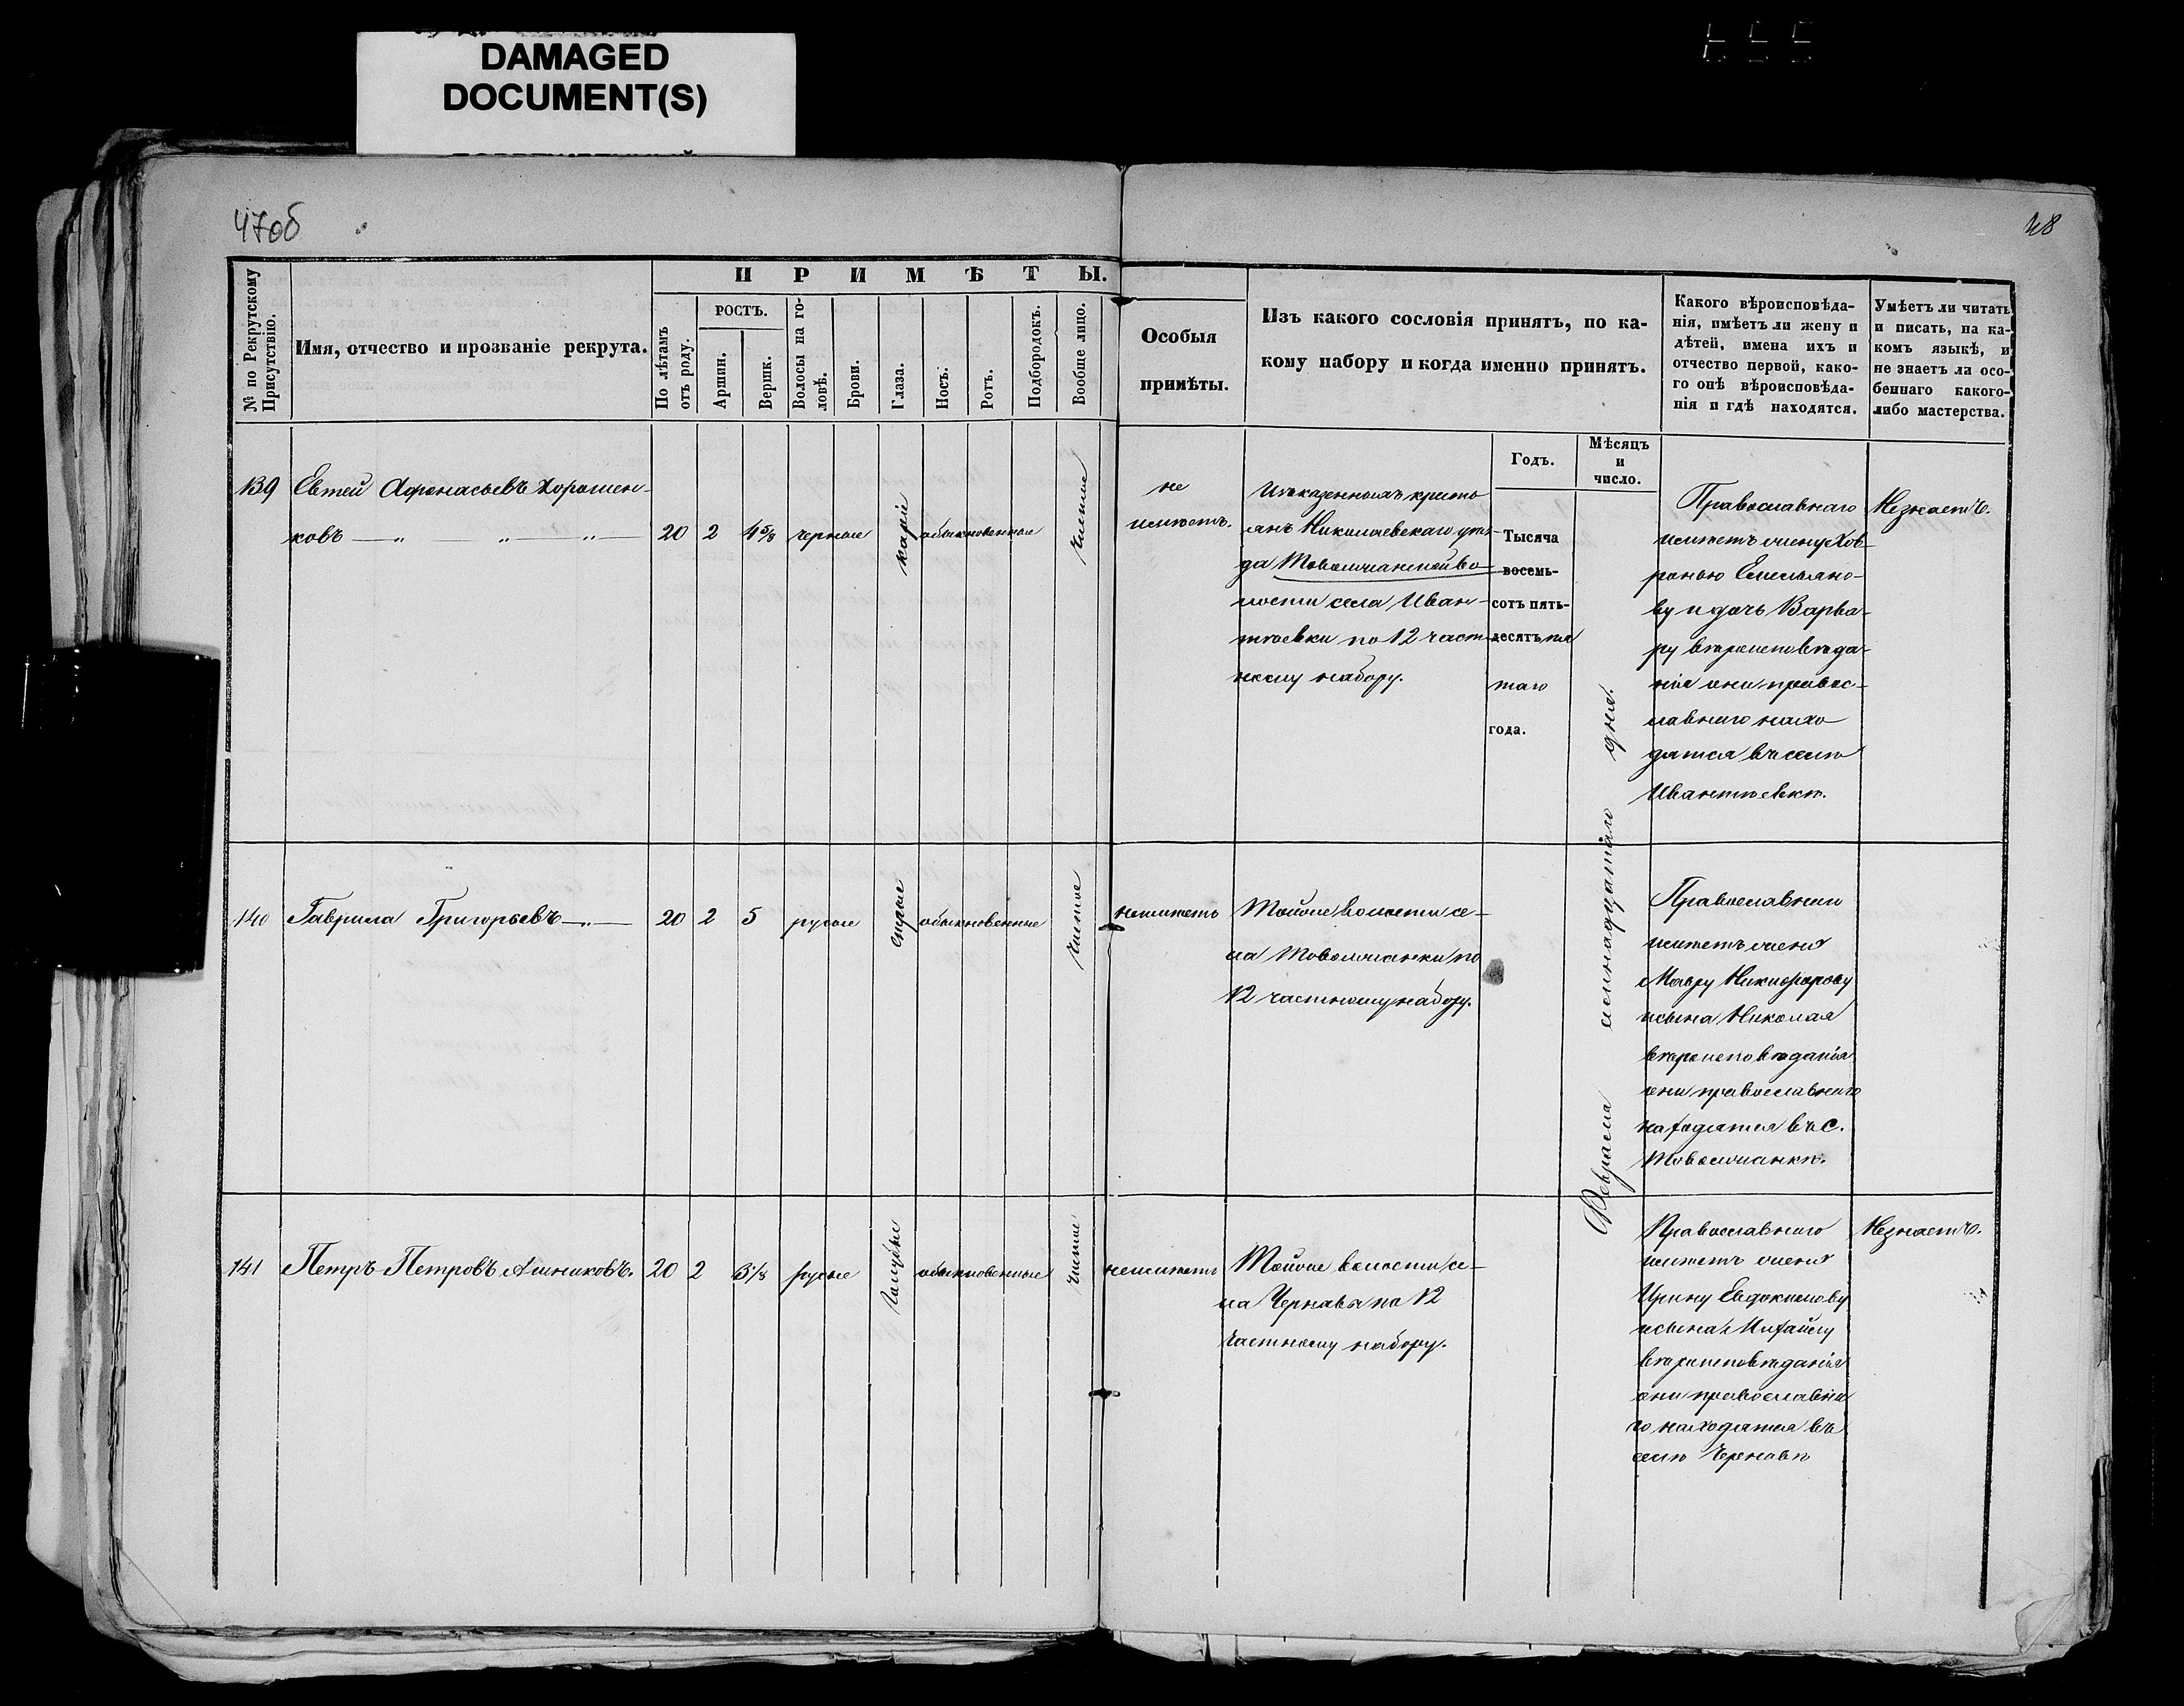 DAMAGED
DOCUMENT(S)
47об
48
№ по Рекрутскому Присутствію.
Имя, отчество и прозваніе рекрута.
ПРИМѢТЫ.
По лѣтамъ отъ роду.
РОСТЪ.
Аршин.
Вершк.
Волосы на головѣ.
Брови.
Глаза.
Носъ.
Ротъ.
Подбородокъ.
Вообще лицо.
Особыя
примѣты.
Изъ какого сословія принятъ, по ка-
кому набору и когда именно принятъ.
Годъ.
Мѣсяцъ
и
число.
Какого вѣроисповѣда-
нія, имѣетъ ли жену и
дѣтей, имена ихъ и
отчество первой, како-
го онѣ вѣроисповѣда-
нія и гдѣ находятся.
Умѣетъ ли читать
и писать, на ка-
комъ языкѣ, и
не знаетъ ли осо-
беннаго какого-
либо мастерства.
139 Евтей Афонасьевъ Хорошен-
ковъ 20 2 4 5/8 черные карiе обыкновенные чистое
не
имѣетъ.
Изъ казенныхъ кресть
янъ Николаевскаго уѣз-
да Товолжанской во-
лости села Иван-
тѣевки по 12 част-
ному набору.
Тысяча
восемь-
сотъ пять-
десятъ пя
таго
года.
Февраля семнадцатаго дня.
Православнаго
имѣетъ жену Хов-
ронью Емельяно-
ву и дочь Варва-
ру вѣроисповѣда-
нія они правос-
лавнаго нахо
дятся въ селѣ
Ивантѣевкѣ.
Незнаетъ.
140 Гаврила Григорьевъ 20 2 5 русые сѣрые обыкновенные чистое
неимѣетъ
Тойже волости се-
ла Товолжанки по
12 частному набору.
Православнаго
имѣетъ жену
Мавру Никифорову
исына Николая
вѣроисповѣданія
они православнаго
находятся въ с.
Товолжанкѣ.
141 Петръ Петровъ 20 2 3 1/8 русые голубые обыкновенные чистое
неимѣетъ
Тойже волости се-
ла Чернавы по 12
частному набору.
Православнаго
имѣетъ жену
Ирину Евдокимову
исына Михайлу
вѣроисповѣданія
они православна
го находятся въ
селѣ Чернавѣ
Незнаетъ.